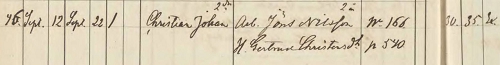 76. Sept. 12 Sept. 22 1 Christian Johan Arb. Jöns Nilsson № 166 30. 35. 34.
H. Gertrude Christersdr. p 540